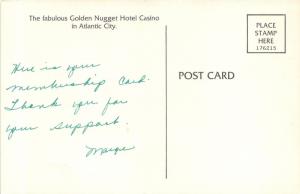 The fabulous Golden Nugget Hotel Casino
in Atlantic City.
PLACE
STAMP
HERE
176215
POST CARD
Here is your
membership Card.
Thank you for
your support.
Marge